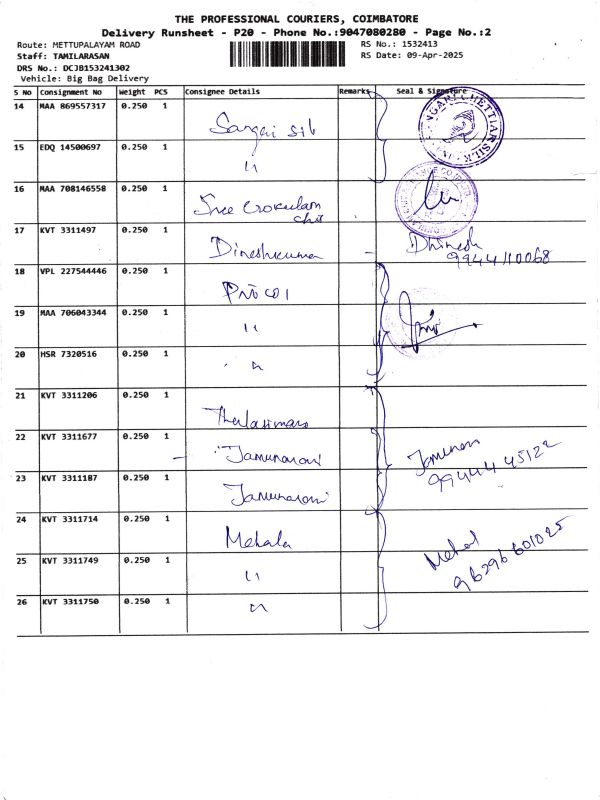 THE PROFESSIONAL COURIERS, COIMBATORE
Delivery Runsheet - P20 - Phone No.:9047080280 - Page No.:2
Route: METTUPALAYAM ROAD RS No.: 1532413
Staff: TAMILARASAN RS Date: 09-Apr-2025
DRS No.: DCJB153241302
Vehicle: Big Bag Delivery
S No Consignment No Weight PCS Consignee Details Remarks Seal & Signature
14 MAA 869557317 0.250 1
15 EDQ 14500697 0.250 1 "
16 MAA 708146558 0.250 1 Sree Gokulam Chit
17 KVT 3311497 0.250 1 Dineshkumar Dhinesh
9944110068
18 VPL 227544446 0.250 1 Pricol
19 MAA 706043344 0.250 1 "
20 HSR 7320516 0.250 1 "
21 KVT 3311206 0.250 1
22 KVT 3311677 0.250 1 Jamunarani
99444 45122
23 KVT 3311187 0.250 1 Jamunarani
24 KVT 3311714 0.250 1 Mehala
25 KVT 3311749 0.250 1 " 96296 601025
26 KVT 3311750 0.250 1 "